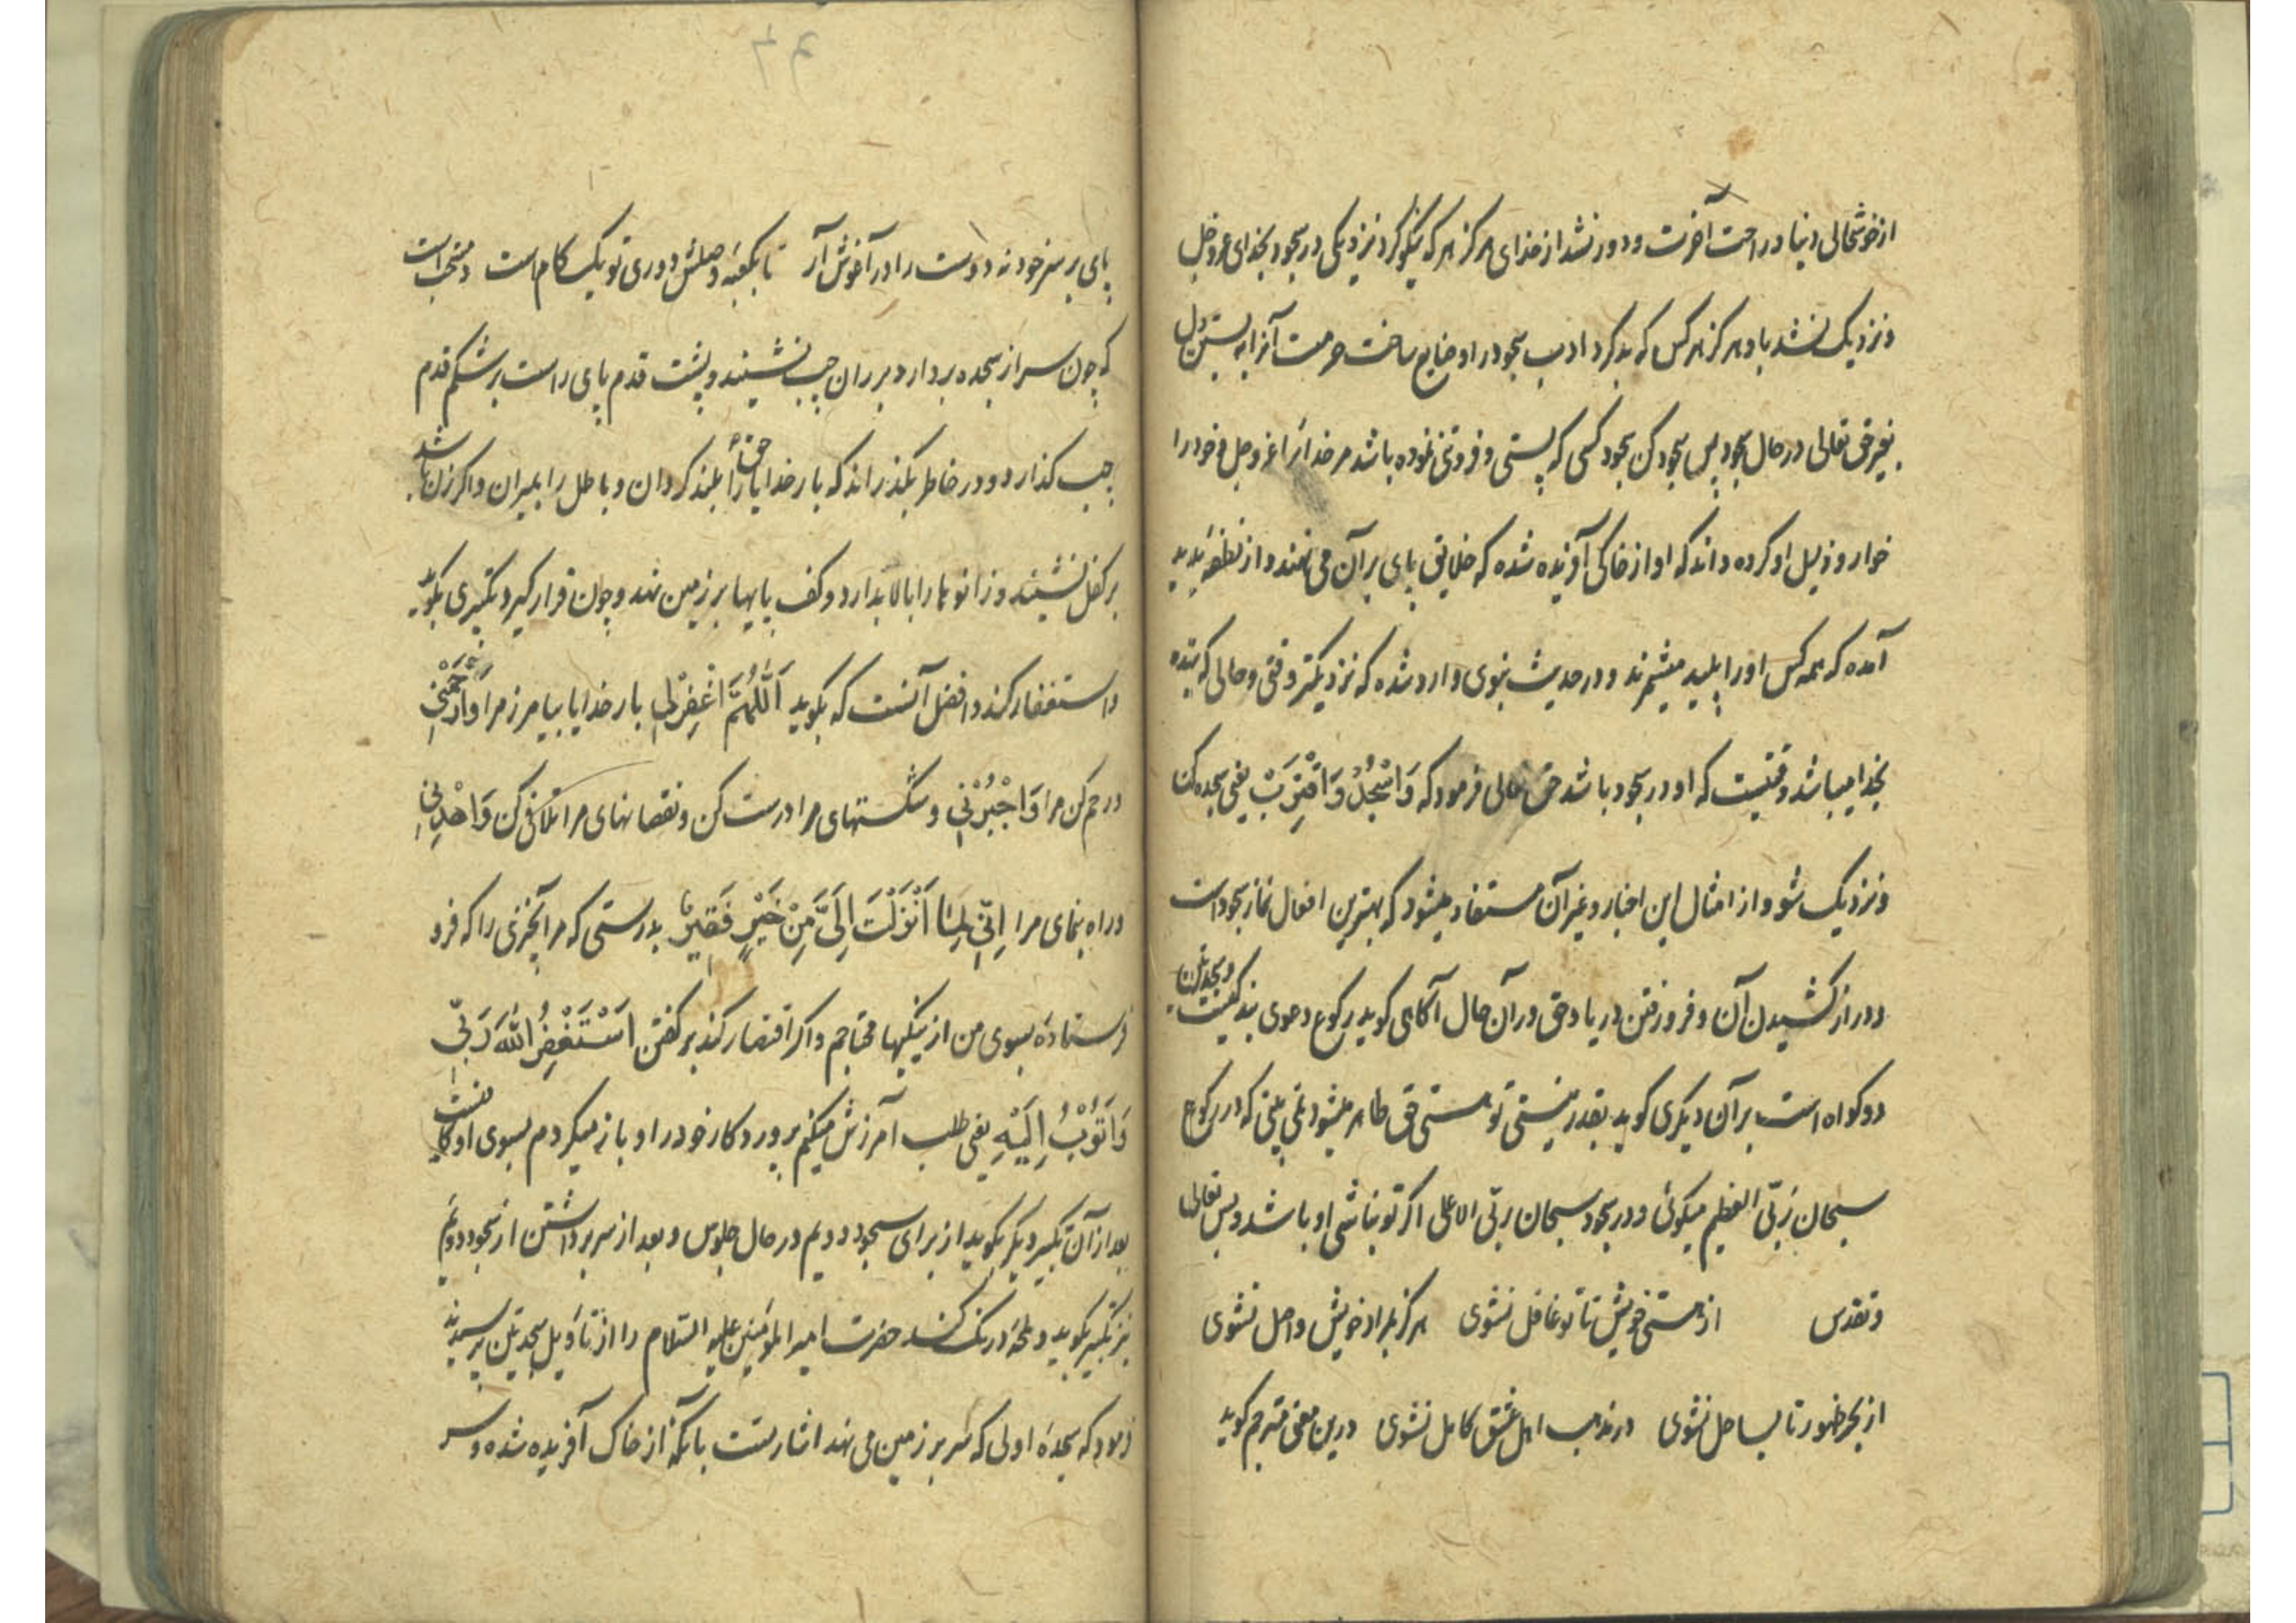 از خوشحالی دنیا و راحت آخرت و دور نشد از خدای هرگز هر که نیکو کرد نزدیکی در سجود بخدای عزوجل
و نزدیک نشد باو هرگز هر کس که بد کرد ادب سجود را و ضایع ساخت حرمت آنرا به بستن دل
بغیر حق تعالی در حال سجود پس سجود کن سجود کسی که پستی و فروتنی نموده باشد مر خدایرا عزوجل و خود را
خوار و ذلیل او کرده داند که او از خاکی آفریده شده که خلایق پای بر آن می نهند و از نطفه پدید
آمده که همه کس او را پلید میشمرند و در حدیث نبوی وارد شده که نزدیکتر وقتی و حالی که بنده
بخدا میباشد وقتیست که او در سجود باشد حق تعالی فرمود که وَاسْجُدْ وَاقْتَرِبْ یعنی سجده کن
و نزدیک شو و از امثال این اخبار و غیر آن مستفاد میشود که بهترین افعال نماز سجود است
و دراز کشیدن آن و فرو رفتن در یاد حق در آن حال آگاهی گوید رکوع دعوی بندگیست و سجدتین
دو گواه است بر آن دیگری گوید بقدر نیستی تو هستی حق ظاهر میشود نمی بینی که در رکوع
سبحان ربّی العظیم میگوئی و در سجود سبحان ربّی الاعلی اگر تو نباشی او باشد و بس تعالی
و تقدس از هستی خویش تا تو غافل نشوی هرگز بمراد خویش واصل نشوی
از بحر ظهور تا بساحل نشوی در مذهب اهل عشق کامل نشوی درین معنی مترجم گوید
پای بر سر خود نه دوست را در آغوش آر تا بکعبه وصلش دوری تو یک کام است و مستحب است
که چون سر از سجده بردارد بر ران چپ نشیند و پشت قدم پای راست بر شکم قدم
چپ گذارد و در خاطر بگذراند که بار خدایا حق را بلند گردان و باطل را بمیران و اگر زن باشد
بر کفل نشیند و زانوها را بالا بدارد و کف پایها بر زمین نهد و چون قرار گیرد تکبیری بگوید
و استغفار کند و افضل آنست که بگوید اَللّٰهُمَّ اغْفِرْلِی بار خدایا بیامرز مرا وَارْحَمْنِی
و رحم کن مرا وَاجْبُرْنِی و شکستهای مرا درست کن و نقصانهای مرا تلافی کن وَاهْدِنِی
و راه بنمای مرا اِنِّی لِمَا اَنْزَلْتَ اِلَیَّ مِنْ خَیْرٍ فَقِیرٌ بدرستی که من آنچیزی را که فرو
فرستاده بسوی من از نیکیها محتاجم و اگر اقتصار کند بر گفتن اَسْتَغْفِرُ اللّٰهَ رَبِّی
وَاَتُوبُ اِلَیْهِ یعنی طلب آمرزش میکنم پروردگار خود را و باز میگردم بسوی او کافیست
بعد از آن تکبیر دیگر بگوید از برای سجود دویم در حال جلوس و بعد از سر برداشتن از سجود دویم
نیز تکبیر بگوید و لمحه درنک کند حضرت امیر المؤمنین علیه السّلام را از تأویل سجدتین پرسیدند
فرمود که سجدهٔ اولی که سر بر زمین می نهد اشارتست بآنکه از خاک آفریده شده و سر